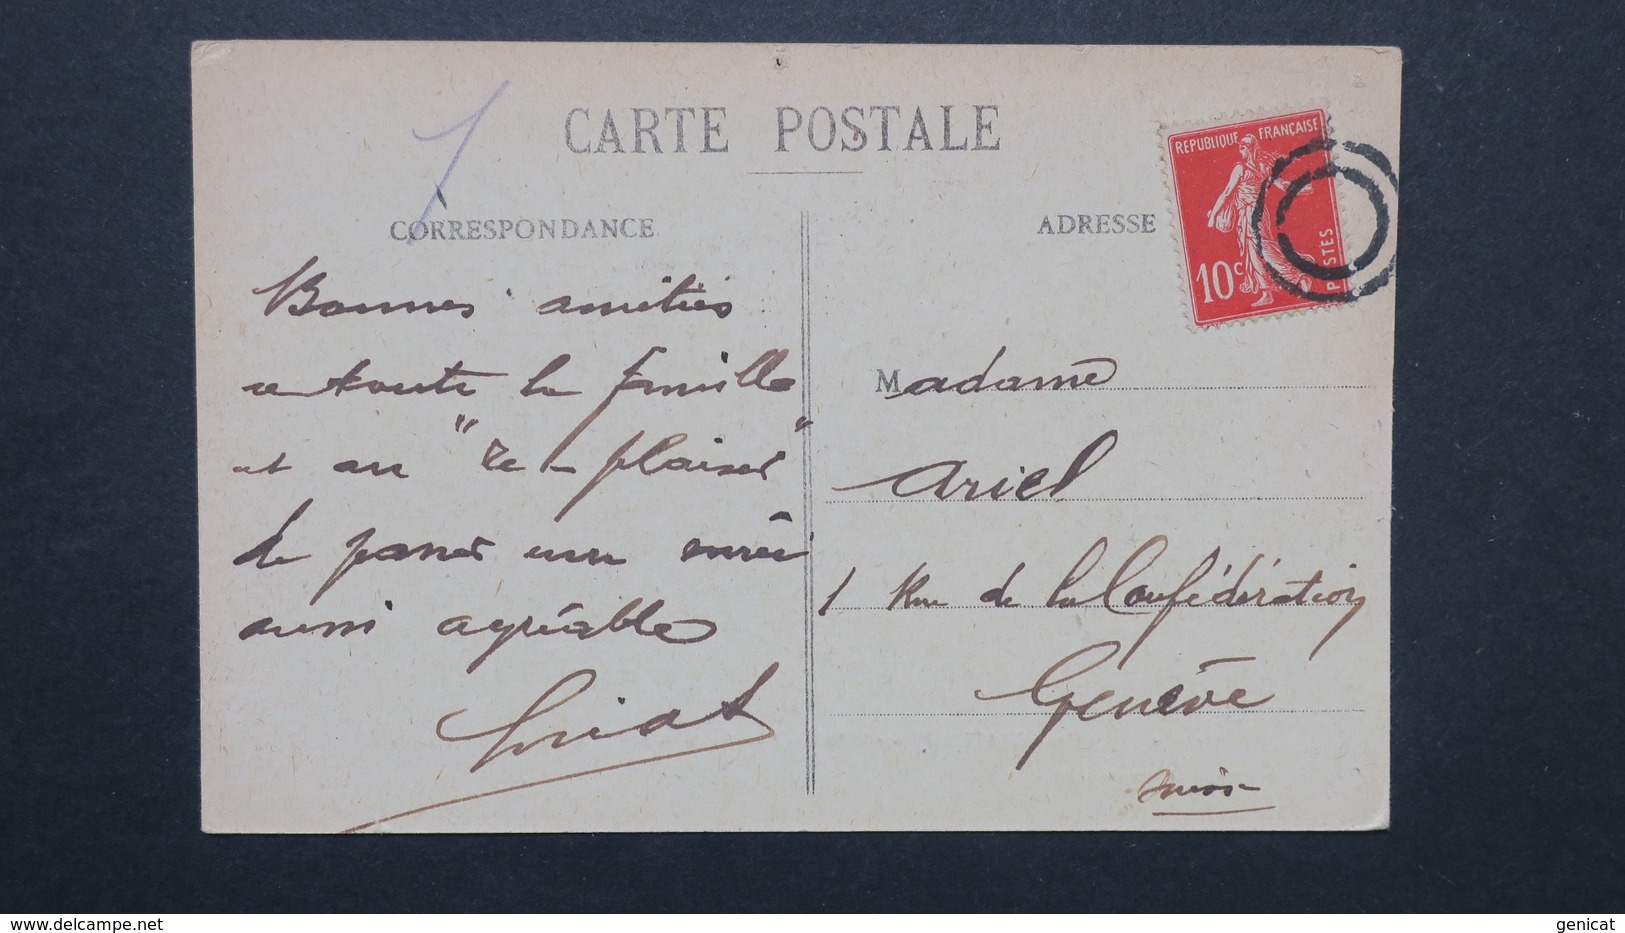 CARTE POSTALE
CORRESPONDANCE
Bonnes amitiés
a toute la famille
et au "re-plaisir"
de passer une soirée
aussi agréable
ADRESSE
REPUBLIQUE FRANÇAISE
10c
POSTES
Madame
Ariel
1 Rue de la Confédération
Genève
Suisse
genicat